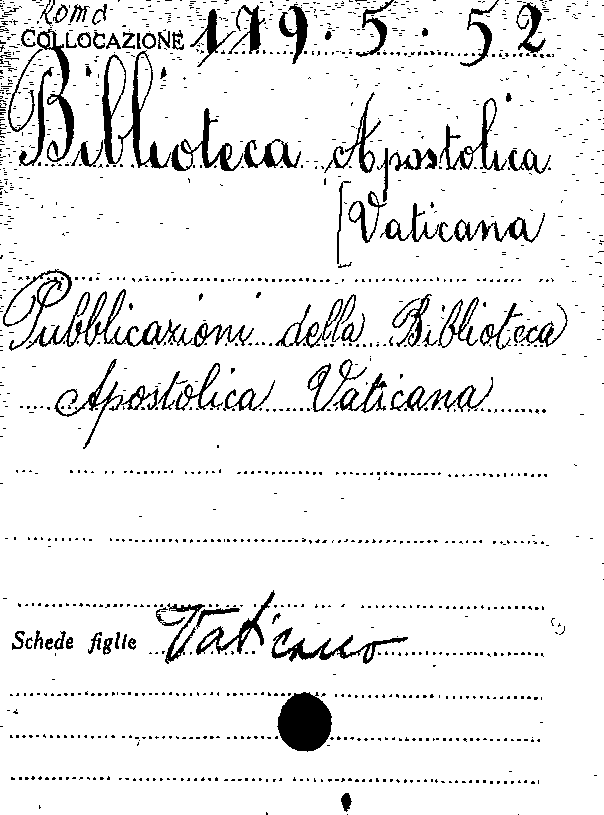 Roma
COLLOCAZIONE 179.5.52
Biblioteca Apostolica
[Vaticana
Pubblicazioni della Biblioteca
Apostolica Vaticana
Schede figlie Vaticano